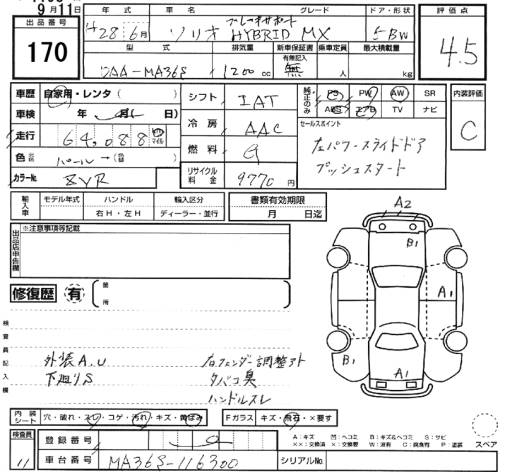 9月11日
出品番号
170
年式 車名 グレード ドア・形状
H28年6月 ソリオ HYBRID MX 5 BW
評価点
4.5
型式 排気量 新車保証書 乗車定員 最大積載量
有無記入
DAA-MA36S 1200cc 無 人 kg
車歴 自家用・レンタ
車検 年 月 日
走行 64,088 km マイル
色 元色 パール→色替
カラーNo. ZVR
シフト IAT
冷房 AAC
燃料 G
リサイクル料金 9770円
純正のみ
PS PW AW SR
ABS エアB TV ナビ
セールスポイント
左パワースライドドア
プッシュスタート
内装評価
C
輸入車 モデル年式 ハンドル 輸入区分
右H・左H ディーラー・並行
書類有効期限
月 日迄
出品店申告欄
※注意事項等記載
修復歴 有 箇所
検査員記入欄
外装A.U
下廻りS
右フェンダー調整アト
タバコ臭
ハンドルスレ
A2
B1
A1
B1
A1
内装シート 穴・破れ・スレ・コゲ・汚れ・キズ・黄ばみ
Fガラス キズ・飛石・×要す
検査員
11
登録番号
車台番号 MA36S-116300
シリアルNo.
スペア